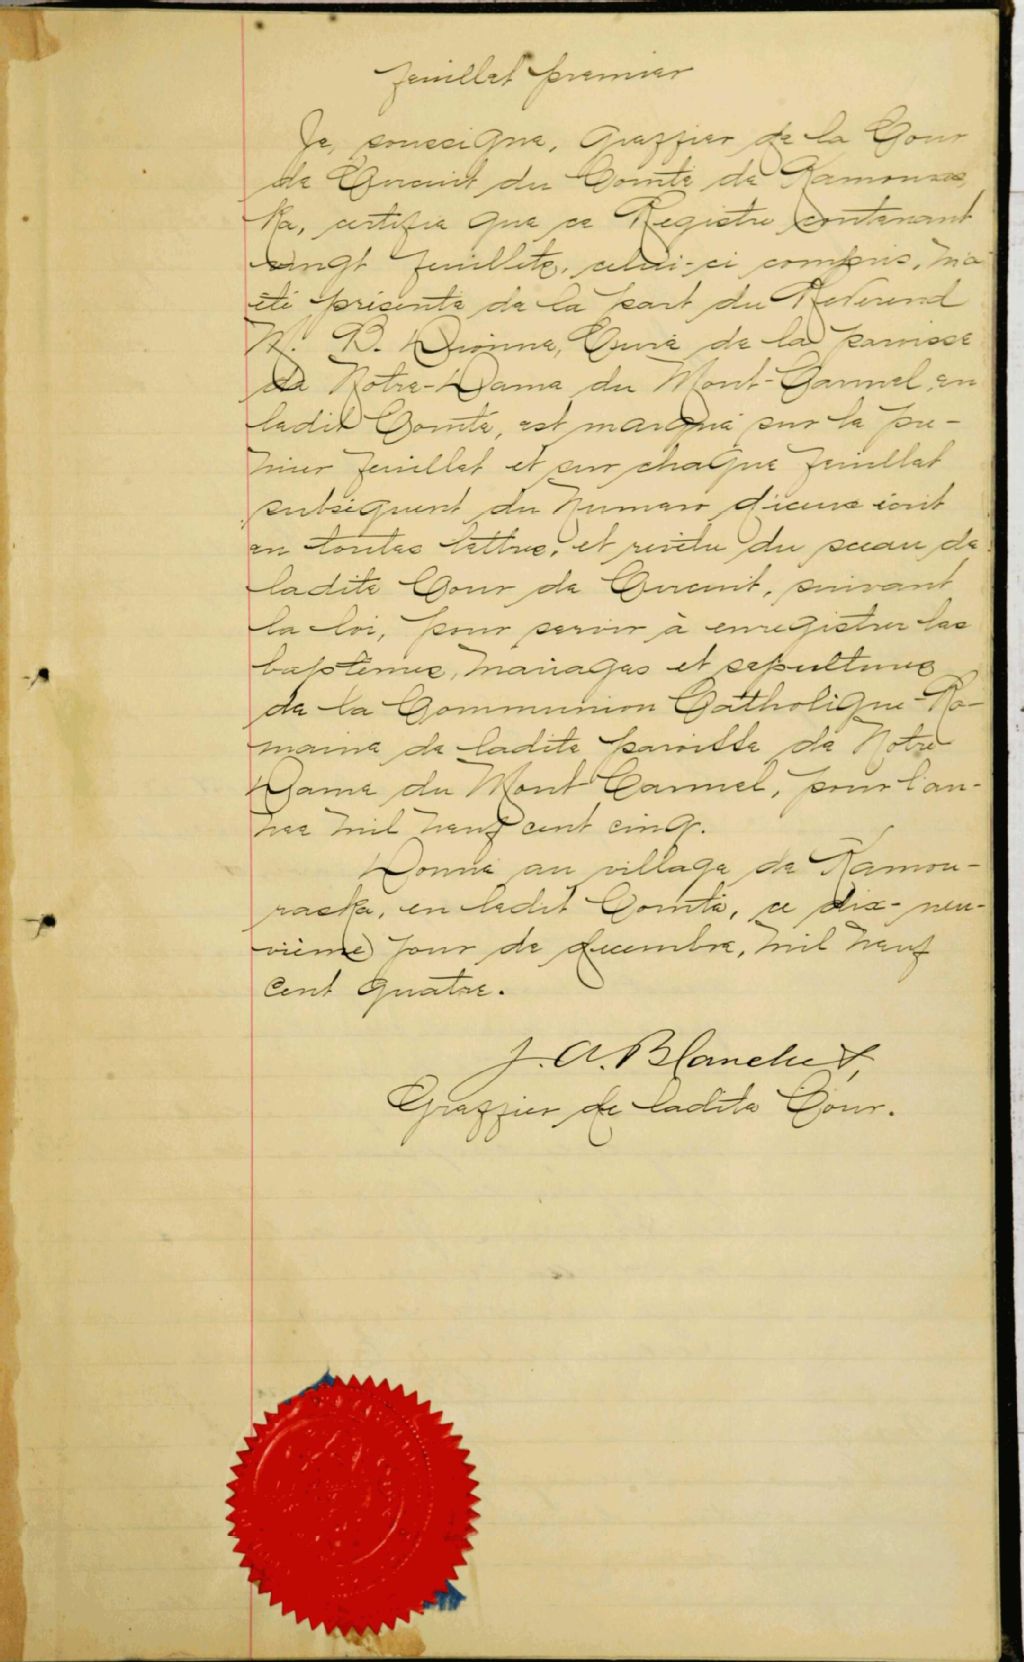 feuillet premier
Je, soussigné, Greffier de la Cour
de Circuit du Comté de Kamouras-
ka, certifie que ce Registre contenant
vingt feuillets, celui-ci compris, m'a
été présenté de la part du Révérend
B. Dionne, Curé de la paroisse
de Notre-Dame du Mont-Carmel, en
ledit Comté, est marqué sur le pre-
mier feuillet et sur chaque feuillet
subséquent du numéro d'iceux écrit
en toutes lettres, et revêtu du sceau de
ladite Cour de Circuit, suivant
la loi, pour servir à enregistrer les
baptêmes, mariages et sépultures
de la Communion Catholique-Ro-
maine de ladite paroisse de Notre
Dame du Mont Carmel, pour l'an-
née mil neuf cent cinq.
Donné au village de Kamou-
raska, en ledit Comté, ce dix-neu-
vième jour de décembre, mil neuf
cent quatre.
J. A. Blanchet,
Greffier de ladite Cour.